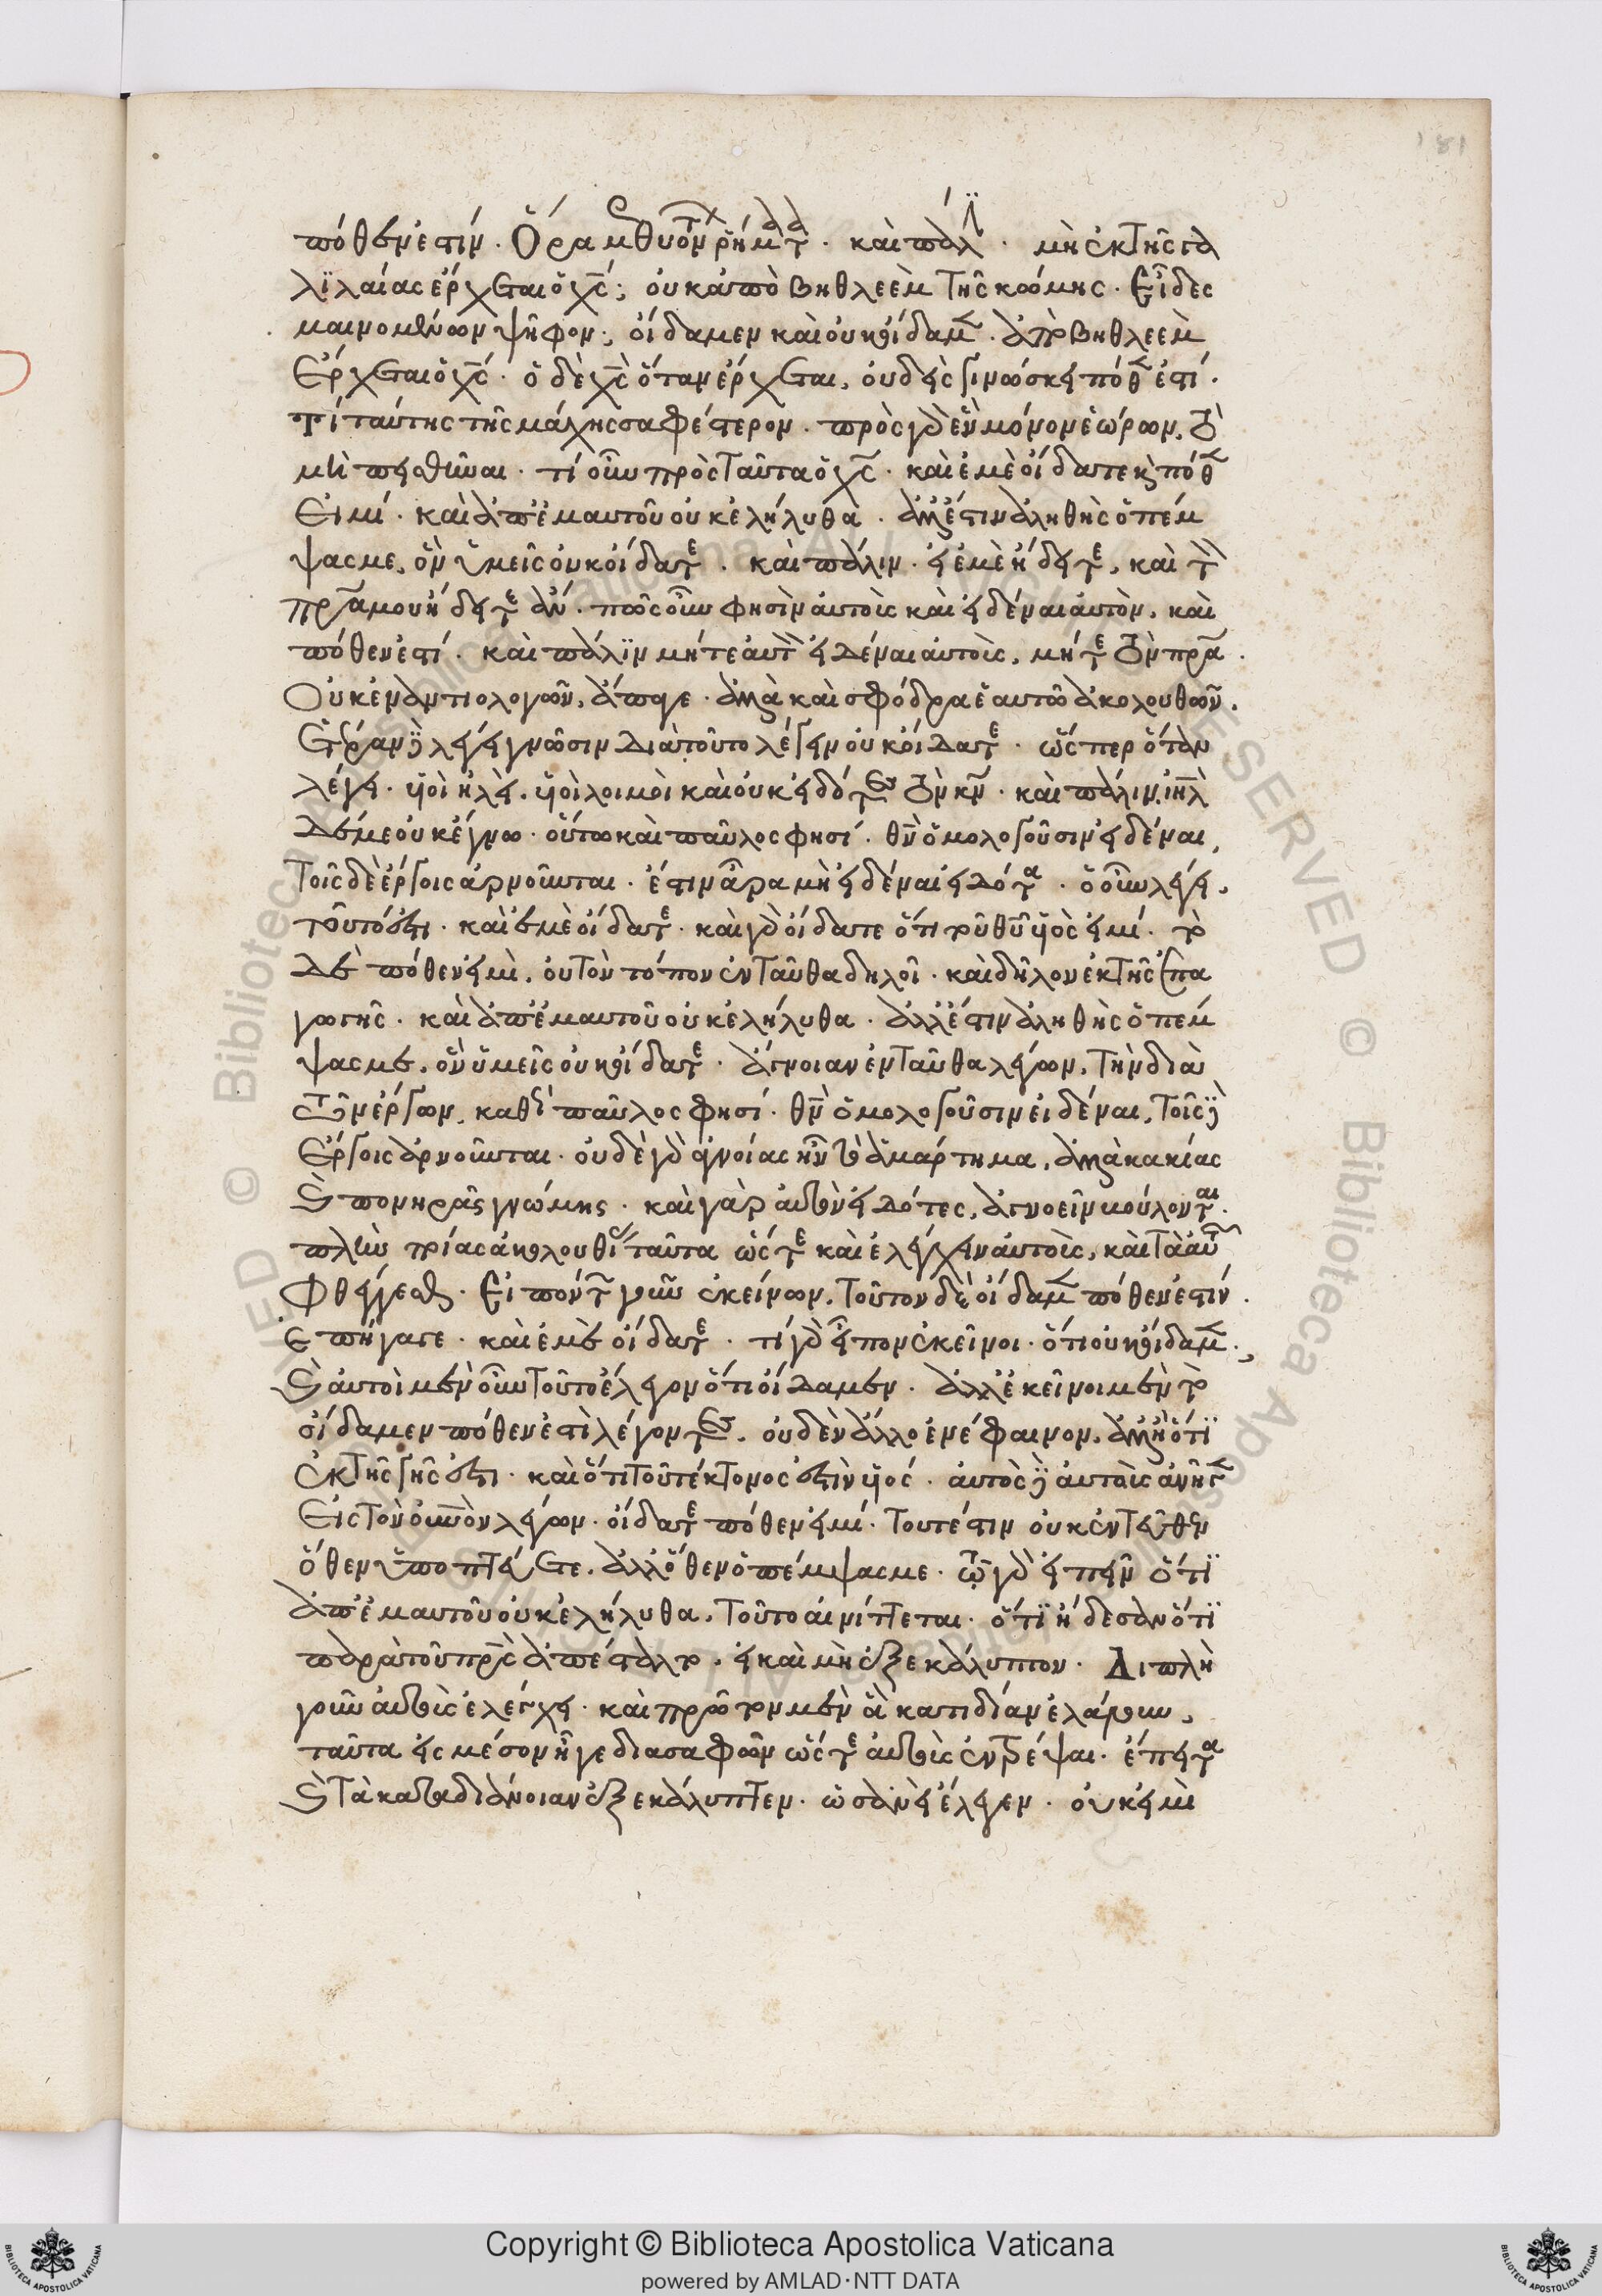 181
πόθεν ἐστίν. Ὅρα μεθυόντων ῥήματα. καὶ πάλιν. μὴ ἐκ τῆς γα
λιλαίας ἔρχεται ὁ χς; οὐκ ἀπὸ βηθλεὲμ τῆς κώμης. Εἶδες
μαινομένων ψῆφον; οἴδαμεν καὶ οὐκ οἴδαμεν. ἀπὸ βηθλεὲμ
Ἔρχεται ὁ χς. ὁ δὲ χς ὅταν ἔρχεται, οὐδεὶς γινώσκει πόθεν ἐστί.
Τί ταύτης τῆς μάχης σαφέστερον. πρὸς γὰρ ἓν μόνον ἑώρων, τὸ
μὴ πεισθῆναι. τί οὖν πρὸς ταῦτα ὁ χς. καὶ ἐμὲ οἴδατε καὶ πόθεν
Εἰμί. καὶ ἀπ' ἐμαυτοῦ οὐκ ἐλήλυθα. ἀλλ' ἔστιν ἀληθὴς ὁ πέμ
ψας με, ὃν ὑμεῖς οὐκ οἴδατε. καὶ πάλιν. εἰ ἐμὲ ᾔδειτε, καὶ τὸν
πρα μου ᾔδειτε ἄν. πῶς οὖν φησὶν αὐτοὺς καὶ εἰδέναι αὐτὸν, καὶ
πόθεν ἐστί. καὶ πάλιν μήτε αὐτὸν εἰδέναι αὐτοὺς, μήτε τὸν πρα.
Οὐκ ἐναντιολογῶν, ἄπαγε. ἀλλὰ καὶ σφόδρα ἑαυτῷ ἀκολουθῶν.
Ἑτέραν δὲ λέγει γνῶσιν διὰ τοῦτο λέγειν οὐκ οἴδατε. ὥσπερ ὅταν
λέγῃ. υἱοὶ ἠλεὶ, υἱοὶ λοιμοὶ καὶ οὐκ εἰδότες τὸν κν. καὶ πάλιν, ιηλ
δέ με οὐκ ἔγνω. οὕτω καὶ παῦλος φησί. θν ὁμολογοῦσιν εἰδέναι,
Τοῖς δὲ ἔργοις ἀρνοῦνται. ἔστιν ἄρα μὴ εἰδέναι εἰδότα. ὃ οὖν λέγει,
τοῦτό ἐστι. καὶ ἐμὲ οἴδατε. καὶ γὰρ οἴδατε ὅτι τοῦ θυ υἱός εἰμι. τὸ
δὲ πόθεν εἰμὶ, οὐ τὸν τόπον ἐνταῦθα δηλοῖ. καὶ δῆλον ἐκ τῆς ἐπα
γωγῆς. καὶ ἀπ' ἐμαυτοῦ οὐκ ἐλήλυθα. ἀλλ' ἔστιν ἀληθὴς ὁ πέμ
ψας με, ὃν ὑμεῖς οὐκ οἴδατε. ἄγνοιαν ἐνταῦθα λέγων, τὴν διὰ
τῶν ἔργων, καθὸ παῦλος φησί. θν ὁμολογοῦσιν εἰδέναι, τοῖς δὲ
Ἔργοις ἀρνοῦνται. οὐδὲ γὰρ ἀγνοίας ἦν τὸ ἁμάρτημα, ἀλλὰ κακίας
καὶ πονηρᾶς γνώμης. καὶ γὰρ αὐτὸν εἰδότες, ἀγνοεῖν ἠβούλοντο.
ταῦτα ὥστε καὶ ἐλέγχειν αὐτοὺς, καὶ τὰ αὐτῶν
Φθέγγεσθαι. Εἰπόντων γοῦν ἐκείνων, τοῦτον δὲ οἴδαμεν πόθεν ἐστίν.
Ἐπήγαγε. καὶ ἐμὲ οἴδατε. τί γὰρ εἶπον ἐκεῖνοι. ὅτι οὐκ οἴδαμεν.
Καὶ αὐτοὶ μὲν οὖν τοῦτο ἔλεγον ὅτι οἴδαμεν. ἀλλ' ἐκεῖνοι μὲν τὸ
οἴδαμεν πόθεν ἐστὶ λέγοντες, οὐδὲν ἄλλο ἐνέφαινον, ἀλλ' ἢ ὅτι
Ἐκ τῆς γῆς ἐστι. καὶ ὅτι τοῦ τέκτονος ἐστὶν υἱός. αὐτὸς δὲ αὐτοὺς ἀνῆγεν
Εἰς τὸν οὐνον λέγων. οἴδατε πόθεν εἰμί. τουτέστιν οὐκ ἐντεῦθεν
ὅθεν ὑποπτεύετε, ἀλλ' ὅθεν ὁ πέμψας με. τὸ γὰρ εἰπεῖν ὅτι
ἀπ' ἐμαυτοῦ οὐκ ἐλήλυθα, τοῦτο αἰνίττεται. ὅτι ᾔδεσαν ὅτι
παρὰ τοῦ πρς ἀπέσταλται. εἰ καὶ μὴ ἐξεκάλυπτον. Διπλῇ
γοῦν αὐτοὺς ἐλέγχει. καὶ πρῶτον μὲν ἃ κατιδίαν ἐλάλουν,
ταῦτα εἰς μέσον ἦγε διασαφῶν ὥστε αὐτοὺς ἐντρέψαι. ἔπειτα
καὶ τὰ κατὰ διάνοιαν ἐξεκάλυπτεν. ὡσανεὶ ἔλεγεν. οὐκ εἰμὶ
Copyright © Biblioteca Apostolica Vaticana
powered by AMLAD·NTT DATA